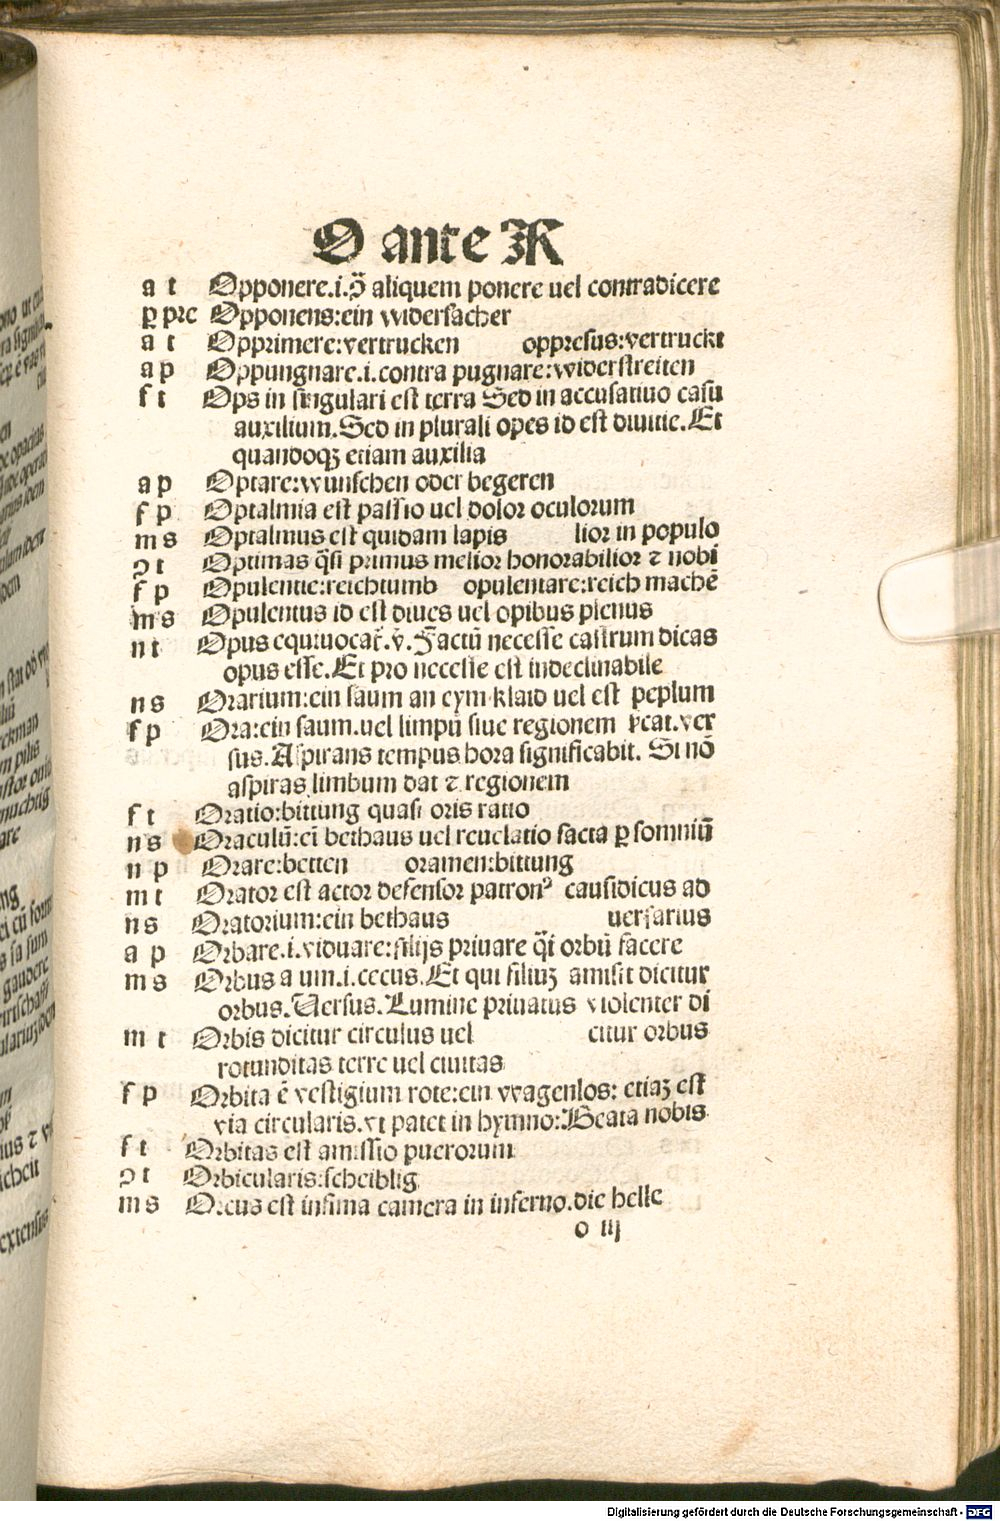 O ante R
a t Opponere.i.ꝯ̃ aliquem ponere uel contradicere
ꝑ pre Opponens:ein widersacher
a t Opprimere:vertrucken oppresus:vertruckt
a p Oppungnare.i.contra pugnare:widerstreiten
f t Ops in singulari est terra Sed in accusatiuo casu
auxilium.Sed in plurali opes id est diuitie.Et
quandoqꝫ etiam auxilia
a p Optare:wunschen oder begeren
f p Optalmia est passio uel dolor oculorum
m s Optalmus est quidam lapis lior in populo
ꝯ t Optimas q̃si primus melior honorabilior ⁊ nobi
f p Opulentie:reichtumb opulentare:reich machē
m s Opulentus id est diues uel opibus plenus
n t Opus equiuocat̃.v̄.Factū necesse castrum dicas
opus esse.Et pro necesse est indeclinabile
n s Orarium:ein saum an eym klaid uel est peplum
f p Ora:ein saum.uel limpū siue regionem vcat.ver
sus.Aspirans tempus hora significabit. Si nō
aspiras limbum dat ⁊ regionem
f t Oratio:bittung quasi oris ratio
n s Oraculū:eī bethaus uel reuelatio facta ꝑ somniū
n p Orare:betten oramen:bittung
m t Orator est actor defensor patronꝰ causidicus ad
n s Oratorium:ein bethaus uersarius
a p Orbare.i.viduare:filijs priuare q̃i orbū facere
m s Orbus a um.i.cecus.Et qui filiuꝫ amisit dicitur
orbus.Uersus.Lumine priuatus violenter di
m t Orbis dicitur circulus uel citur orbus
rotunditas terre uel ciuitas
f p Orbita ē vestigium rote:ein wagenlos: etiaꝫ est
via circularis.vt patet in hymno:Beata nobis
f t Orbitas est amissio puerorum
ꝯ t Orbicularis:scheiblig
m s Orcus est infima camera in inferno.die helle
o iij
Digitalisierung gefördert durch die Deutsche Forschungsgemeinschaft - DFG